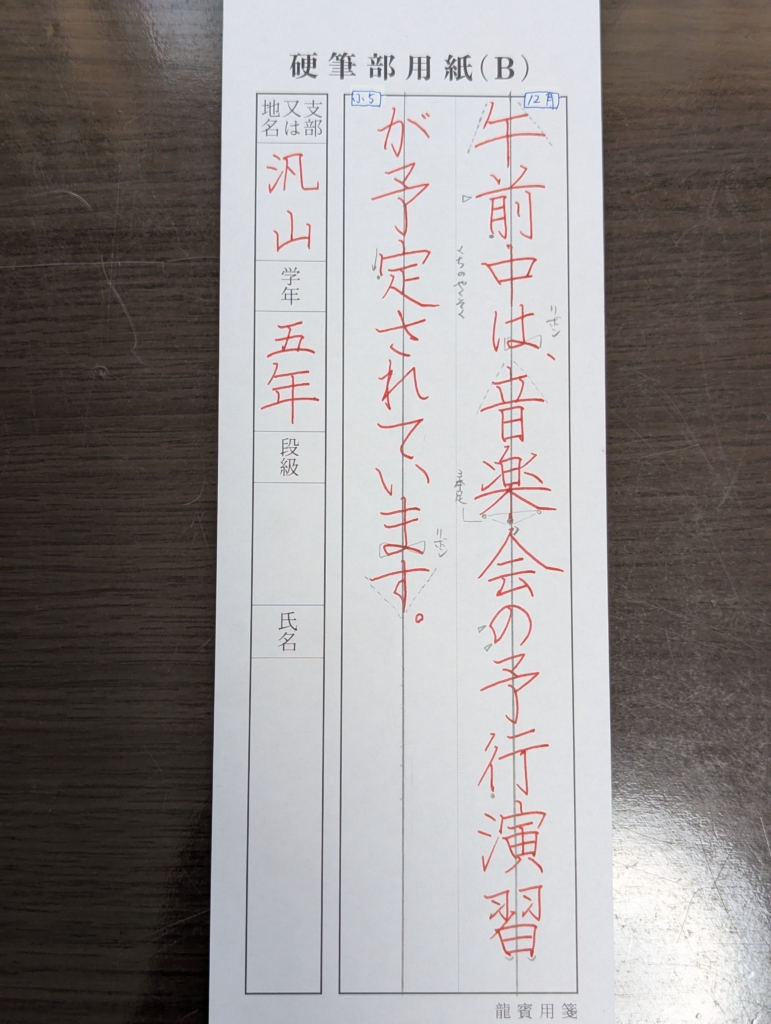 硬筆部用紙(B)
12月
午前中は、音楽会の予行演習
小5
が予定されています。
くちのやくそく
リボン
3本足
リボン
支部又は地名
汎山
学年
五年
段級
氏名
龍賓用箋